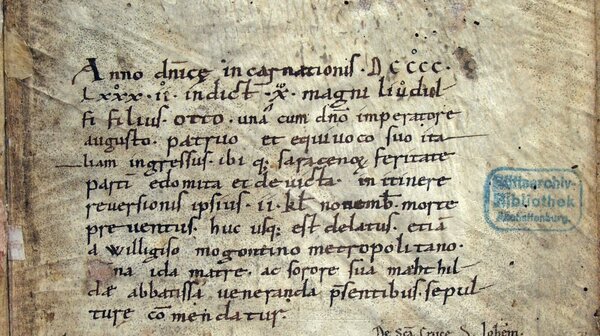 Anno dn̄icę incarnationis · DCCCC ·
LXXX · ii · indict · X · magni liu̇dul
fi filius otto · una cum dn̄o imperatore
augusto · patruo et equiuoco suo ita
liam ingressus · ibi q; saracenoꝝ feritate
partī edomita et deuicta · in itinere
reuersionis ipsius · ii · kl̄ nouemb · morte
preuentus · huc usq; est delatus · etiā
a Willigiso mogontino metropolitano ·
na ida matre · ac sorore sua mahthil
dæ abbatissā ueneranda p̄sentibus · sepul
ture comendatur ·
Stiftsarchiv-
Bibliothek
Aschaffenburg.
De Scā Cruce S. Iohem